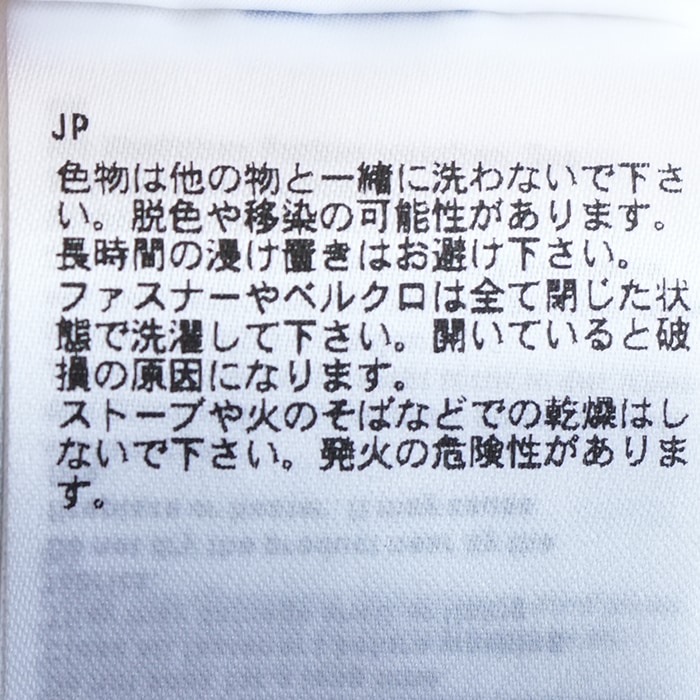 JP
色物は他の物と一緒に洗わないで下さ
い。脱色や移染の可能性があります。
長時間の浸け置きはお避け下さい。
ファスナーやベルクロは全て閉じた状
態で洗濯して下さい。開いていると破
損の原因になります。
ストーブや火のそばなどでの乾燥はし
ないで下さい。発火の危険性がありま
す。